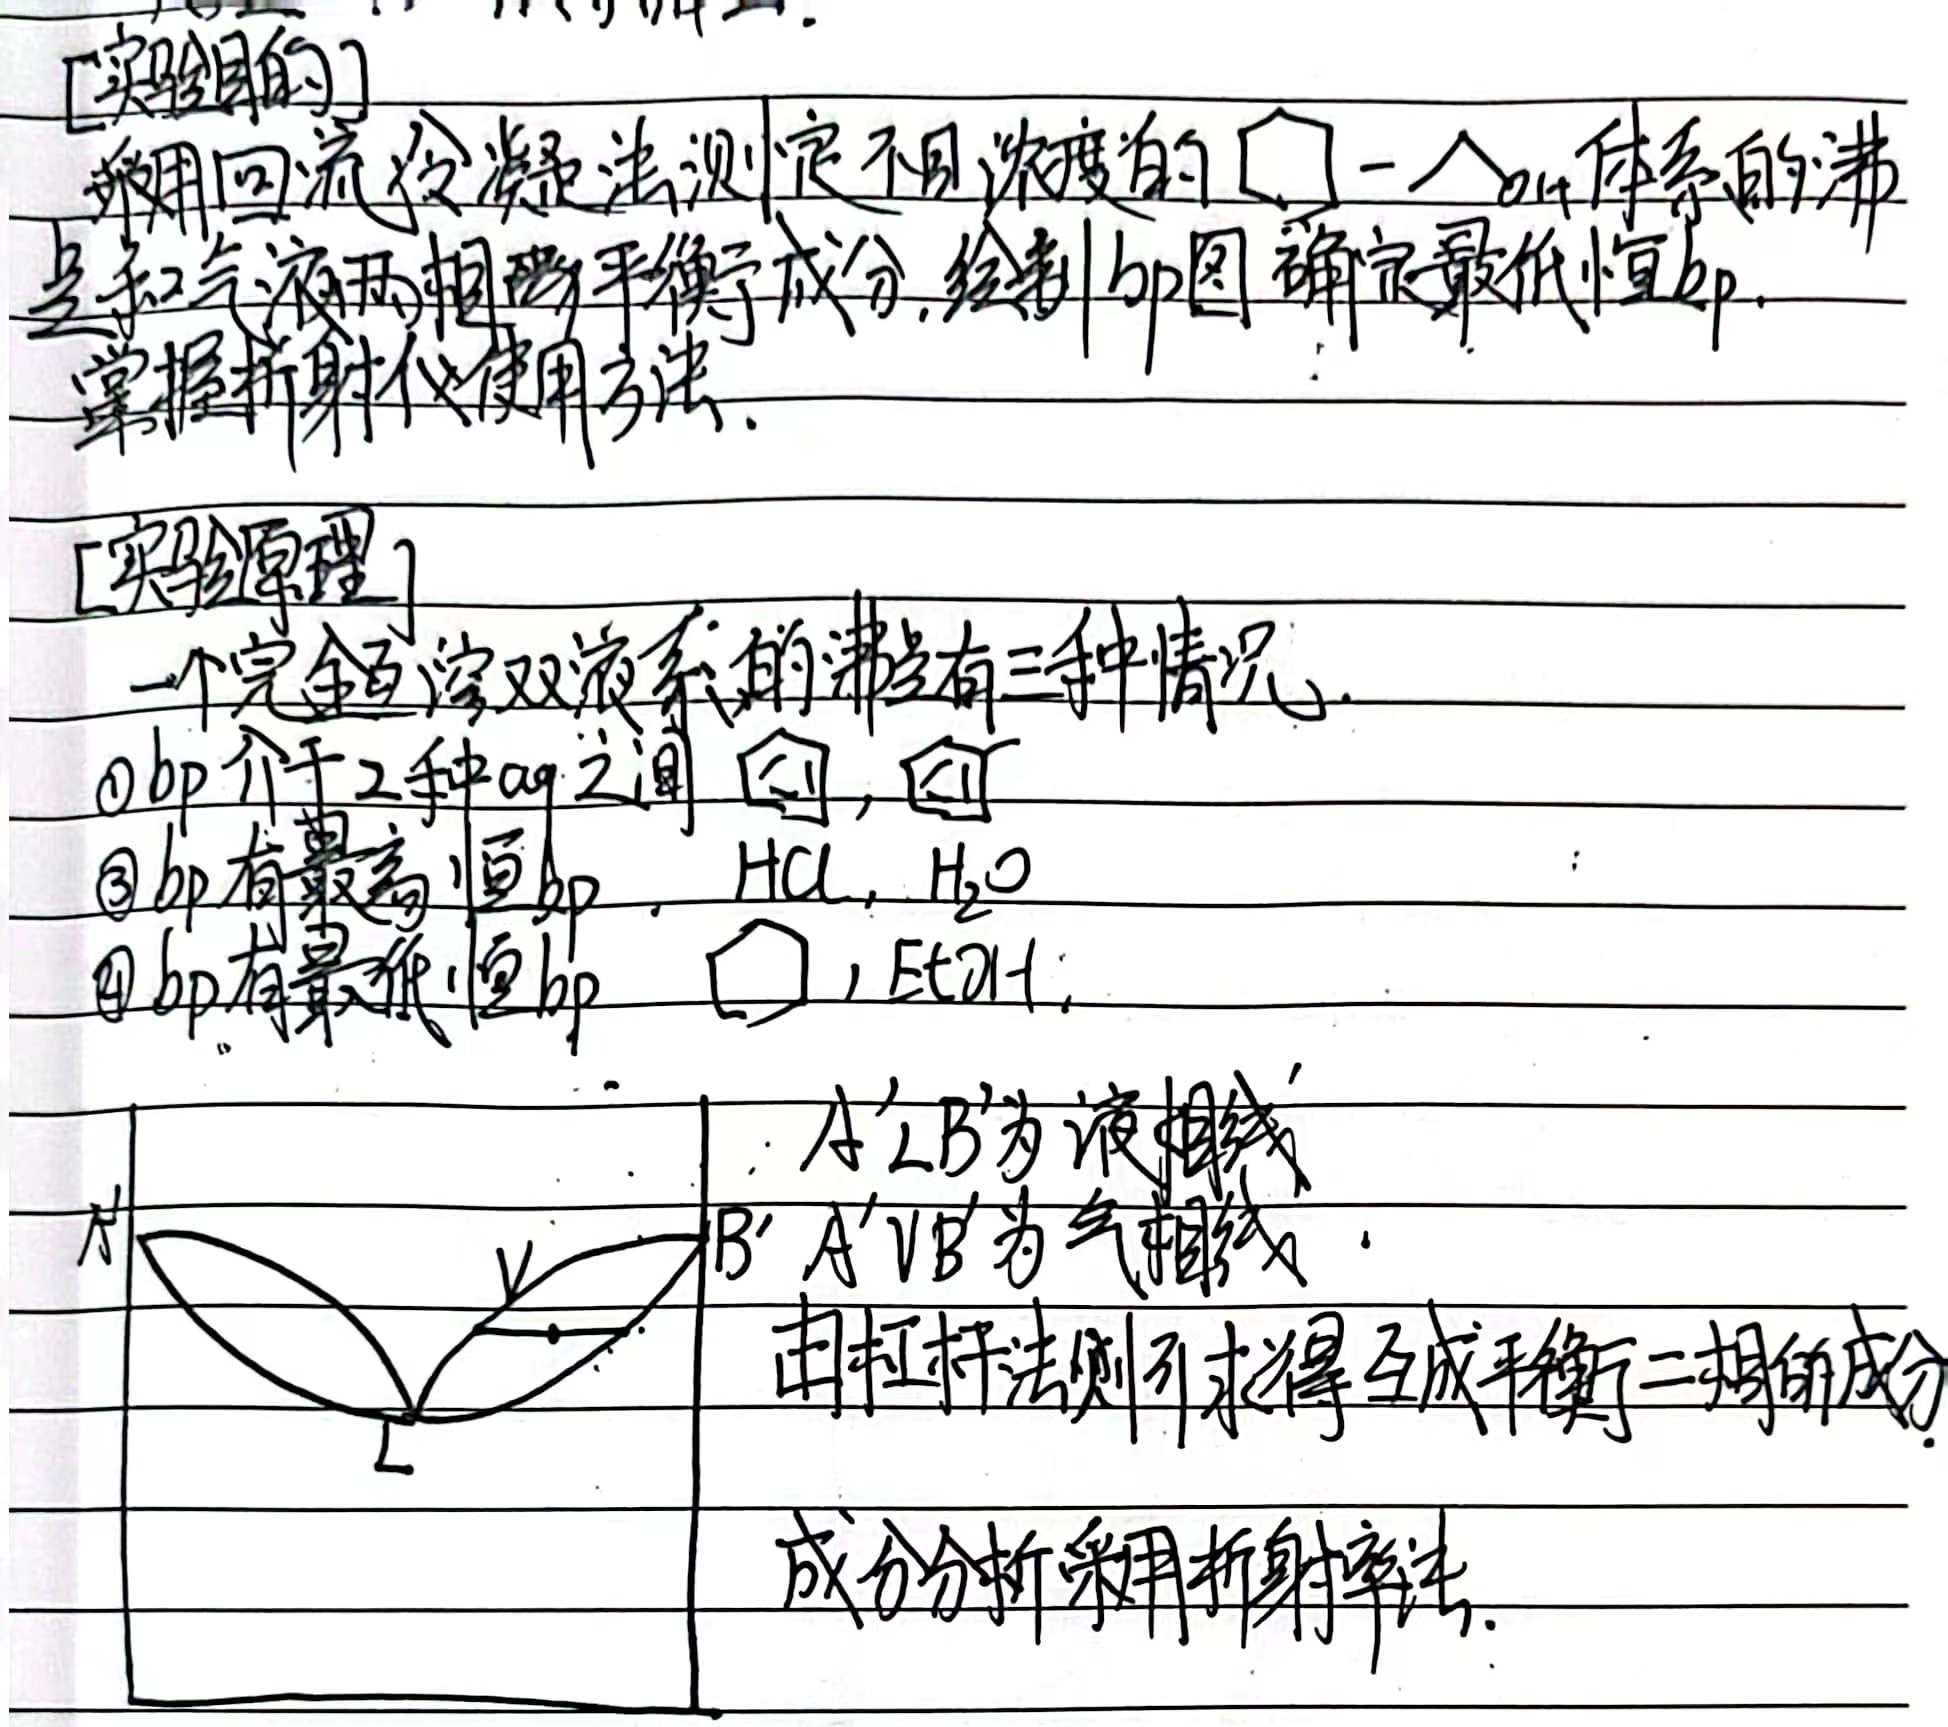 [实验目的]
采用回流冷凝法测定不同浓度的 - OH体系的沸
点和气液两相平衡成分,绘制bp图 确定最低恒bp.
掌握折射仪使用方法.
[实验原理]
一个完全互溶双液系的沸点有三种情况.
①bp介于2种aq之间 ,
③bp有最高恒bp. HCl, H₂O
④bp有最低恒bp , EtOH.
A'LB'为液相线
A' V B' A'VB'为气相线.
由杠杆法则可求得互成平衡二相的成分.
L
成分分析采用折射率法.